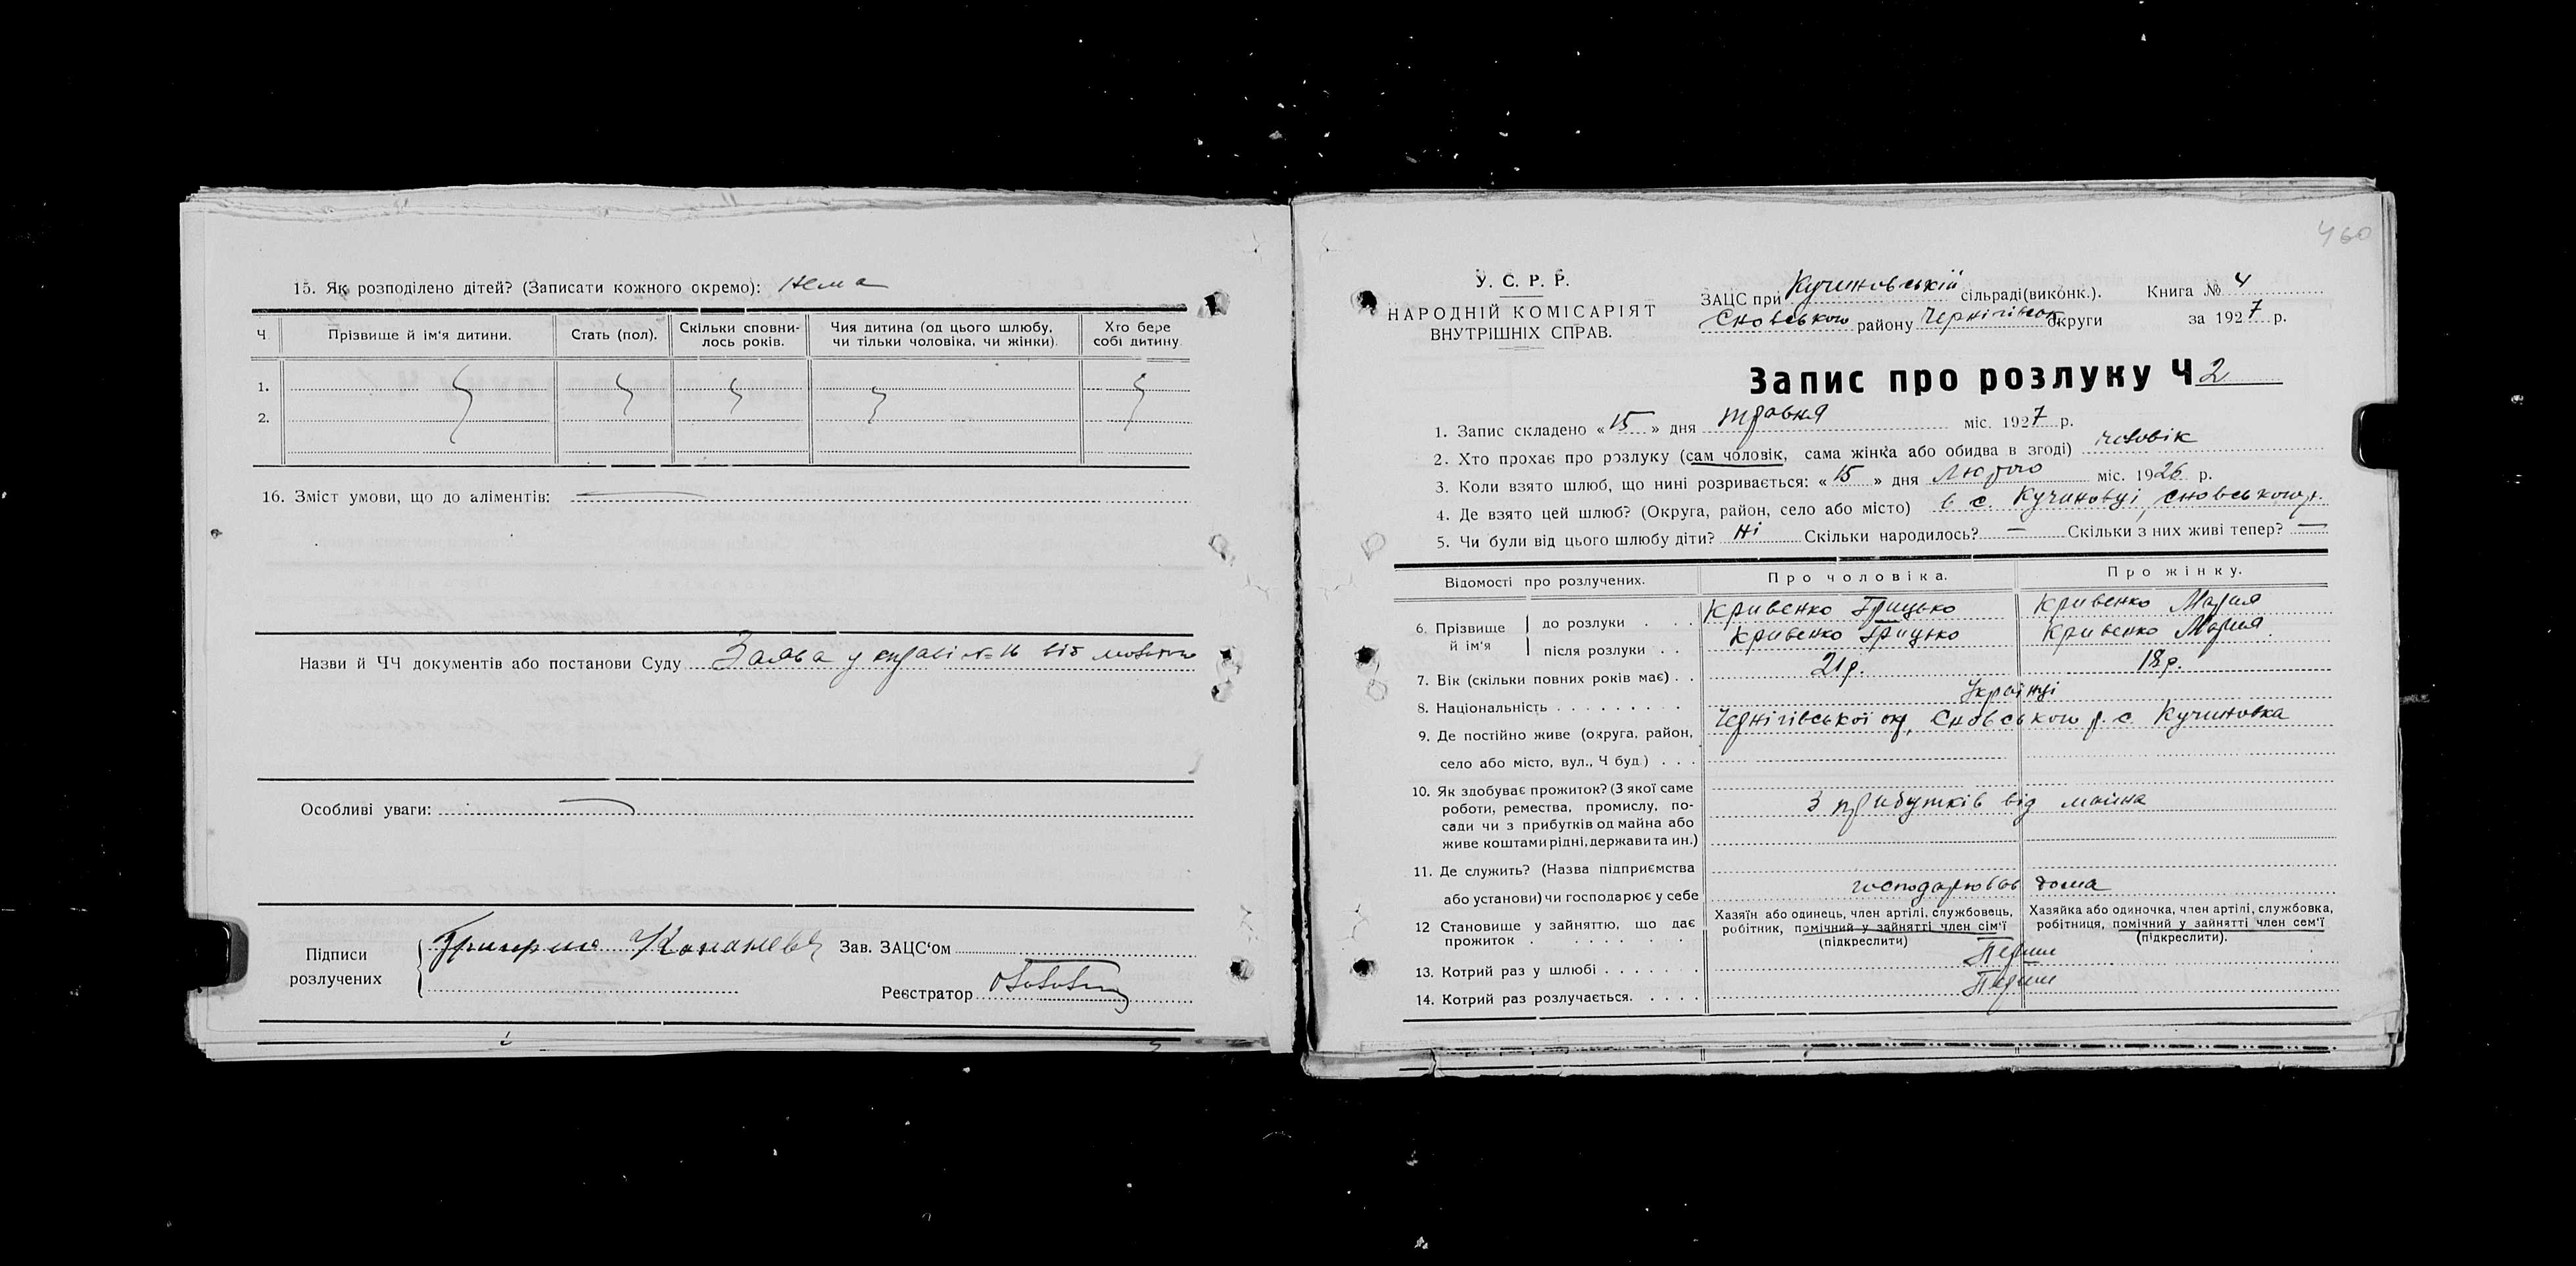 15. Як розподілено дітей? (Записати кожного окремо): нема
Ч.
Прізвище й ім'я дитини.
Стать (пол).
Скільки сповни-
лось років.
Чия дитина (од цього шлюбу,
чи тільки чоловіка, чи жінки).
Хто бере
собі дитину.
1.
2.
16. Зміст умови, що до аліментів: —
Назви й ЧЧ документів або постанови Суду Заява у справі № 16 від
Особливі уваги: —
Підписи
розлучених
Зав. ЗАЦС'ом
Реєстратор
460
У. С. Р. Р.
НАРОДНІЙ КОМІСАРІЯТ
ВНУТРІШНІХ СПРАВ.
ЗАЦС при Кучиновській сільраді (виконк.). Книга № 4
Сновського району Чернігівськ. округи за 1927 р.
Запис про розлуку Ч 2
1. Запис складено «15» дня травня міс. 1927 р.
2. Хто прохає про розлуку (сам чоловік, сама жінка або обидва в згоді) чоловік
3. Коли взято шлюб, що нині розривається: «15» дня Лютого міс. 1926 р.
4. Де взято цей шлюб? (Округа, район, село або місто) в с. Кучиновці, Сновського р.
5. Чи були від цього шлюбу діти? Ні Скільки народилось? — Скільки з них живі тепер? —
Відомості про розлучених.
Про чоловіка.
Про жінку.
6. Прізвище й ім'я
до розлуки . . . Кривенко Грицько Кривенко Мария
після розлуки . . Кривенко Грицько Кривенко Мария
7. Вік (скільки повних років має) . . 21 р. 18 р.
8. Національність . . . . . . . . . Українці
9. Де постійно живе (округа, район, Чернігівської ок, Сновського р. с. Кучиновка
село або місто, вул., Ч буд.) . . .
10. Як здобуває прожиток? (З якої саме
роботи, ремества, промислу, по-
сади чи з прибутків од майна або
живе коштами рідні, держави та ин.)
З прибутків від майна
11. Де служить? (Назва підприємства
або установи) чи господарює у себе господарював дома
12 Становище у зайняттю, що дає
прожиток . . . . . . .
Хазяїн або одинець, член артілі, службовець,
робітник, помічний у зайнятті член сім'ї
(підкреслити)
Хазяйка або одиночка, член артілі, службовка,
робітниця, помічний у зайнятті член сем'ї
(підкреслити).
13. Котрий раз у шлюбі . . . . . . . Перши
14. Котрий раз розлучається. . . . . Перши